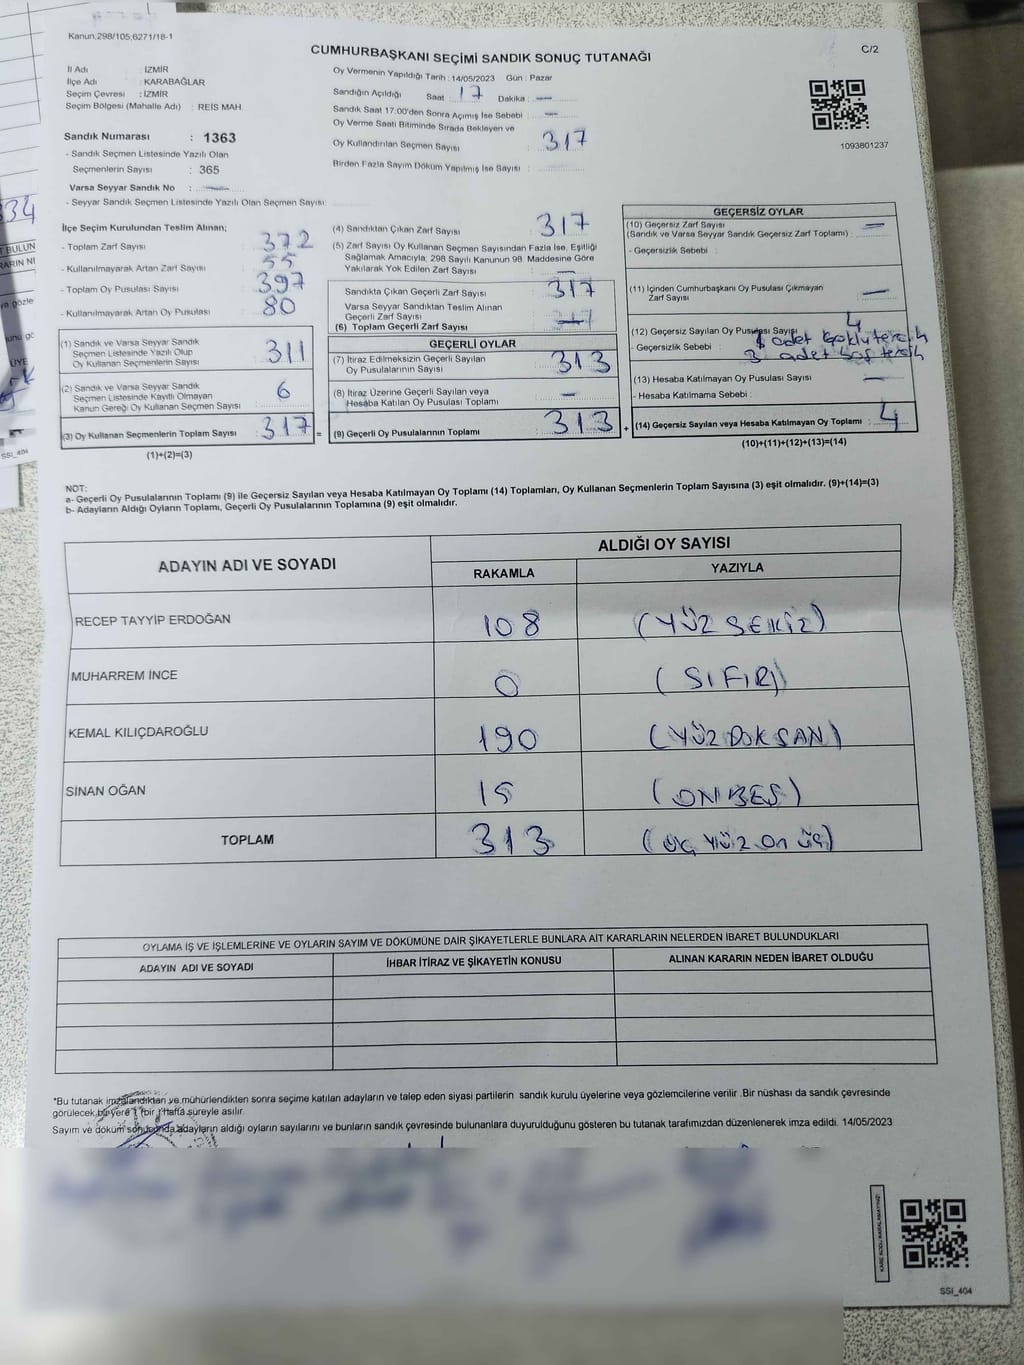 Kanun:298/105;6271/18-1
CUMHURBAŞKANI SEÇİMİ SANDIK SONUÇ TUTANAĞI
C/2
İl Adı : İZMİR
İlçe Adı : KARABAĞLAR
Seçim Çevresi : İZMİR
Seçim Bölgesi (Mahalle Adı) : REİS MAH.
Oy Vermenin Yapıldığı Tarih : 14/05/2023 Gün : Pazar
Sandığın Açıldığı Saat : 17 Dakika : —
Sandık Saat 17:00'den Sonra Açımış İse Sebebi : —
Oy Verme Saati Bitiminde Sırada Bekleyen ve
Oy Kullandırılan Seçmen Sayısı : 317
Birden Fazla Sayım Döküm Yapılmış İse Sayısı :
1093801237
Sandık Numarası : 1363
- Sandık Seçmen Listesinde Yazılı Olan
Seçmenlerin Sayısı : 365
Varsa Seyyar Sandık No : —
- Seyyar Sandık Seçmen Listesinde Yazılı Olan Seçmen Sayısı:
İlçe Seçim Kurulundan Teslim Alınan;
- Toplam Zarf Sayısı : 372
- Kullanılmayarak Artan Zarf Sayısı : 55
- Toplam Oy Pusulası Sayısı : 397
- Kullanılmayarak Artan Oy Pusulası : 80
(1) Sandık ve Varsa Seyyar Sandık
Seçmen Listesinde Yazılı Olup
Oy Kullanan Seçmenlerin Sayısı : 311
(2) Sandık ve Varsa Seyyar Sandık
Seçmen Listesinde Kayıtlı Olmayan
Kanun Gereği Oy Kullanan Seçmen Sayısı : 6
(3) Oy Kullanan Seçmenlerin Toplam Sayısı : 317 =
(1)+(2)=(3)
(4) Sandıktan Çıkan Zarf Sayısı : 317
(5) Zarf Sayısı Oy Kullanan Seçmen Sayısından Fazla İse, Eşitliği
Sağlamak Amacıyla; 298 Sayılı Kanunun 98. Maddesine Göre
Yakılarak Yok Edilen Zarf Sayısı : —
Sandıkta Çıkan Geçerli Zarf Sayısı : 317
Varsa Seyyar Sandıktan Teslim Alınan
Geçerli Zarf Sayısı
(6) Toplam Geçerli Zarf Sayısı
GEÇERLİ OYLAR
(7) İtiraz Edilmeksizin Geçerli Sayılan
Oy Pusulalarının Sayısı : 313
(8) İtiraz Üzerine Geçerli Sayılan veya
Hesaba Katılan Oy Pusulası Toplamı : —
(9) Geçerli Oy Pusulalarının Toplamı : 313 +
GEÇERSİZ OYLAR
(10) Geçersiz Zarf Sayısı
(Sandık ve Varsa Seyyar Sandık Geçersiz Zarf Toplamı) : —
- Geçersizlik Sebebi :
(11) İçinden Cumhurbaşkanı Oy Pusulası Çıkmayan
Zarf Sayısı : —
(12) Geçersiz Sayılan Oy Pusulası Sayısı 4
- Geçersizlik Sebebi : 1 adet çoklu tercih
3 adet boş tercih
(13) Hesaba Katılmayan Oy Pusulası Sayısı : —
- Hesaba Katılmama Sebebi :
(14) Geçersiz Sayılan veya Hesaba Katılmayan Oy Toplamı : 4
(10)+(11)+(12)+(13)=(14)
NOT:
a- Geçerli Oy Pusulalarının Toplamı (9) ile Geçersiz Sayılan veya Hesaba Katılmayan Oy Toplamı (14) Toplamları, Oy Kullanan Seçmenlerin Toplam Sayısına (3) eşit olmalıdır. (9)+(14)=(3)
b- Adayların Aldığı Oyların Toplamı, Geçerli Oy Pusulalarının Toplamına (9) eşit olmalıdır.
ADAYIN ADI VE SOYADI ALDIĞI OY SAYISI
RAKAMLA YAZIYLA
RECEP TAYYİP ERDOĞAN 108 (YÜZ SEKİZ)
MUHARREM İNCE 0 (SIFIR)
KEMAL KILIÇDAROĞLU 190 (YÜZ DOKSAN)
SİNAN OĞAN 15 (ONBEŞ)
TOPLAM 313 (ÜÇ YÜZ On ÜÇ)
OYLAMA İŞ VE İŞLEMLERİNE VE OYLARIN SAYIM VE DÖKÜMÜNE DAİR ŞİKAYETLERLE BUNLARA AİT KARARLARIN NELERDEN İBARET BULUNDUKLARI
ADAYIN ADI VE SOYADI İHBAR İTİRAZ VE ŞİKAYETİN KONUSU ALINAN KARARIN NEDEN İBARET OLDUĞU
*Bu tutanak imzalandıktan ve mühürlendikten sonra seçime katılan adayların ve talep eden siyasi partilerin sandık kurulu üyelerine veya gözlemcilerine verilir. Bir nüshası da sandık çevresinde
görülecek bir yere 1 (bir) hafta süreyle asılır.
Sayım ve döküm sonucunda adayların aldığı oyların sayılarını ve bunların sandık çevresinde bulunanlara duyurulduğunu gösteren bu tutanak tarafımızdan düzenlenerek imza edildi. 14/05/2023
KARE KODU KARALAMAYINIZ!
SSİ_404